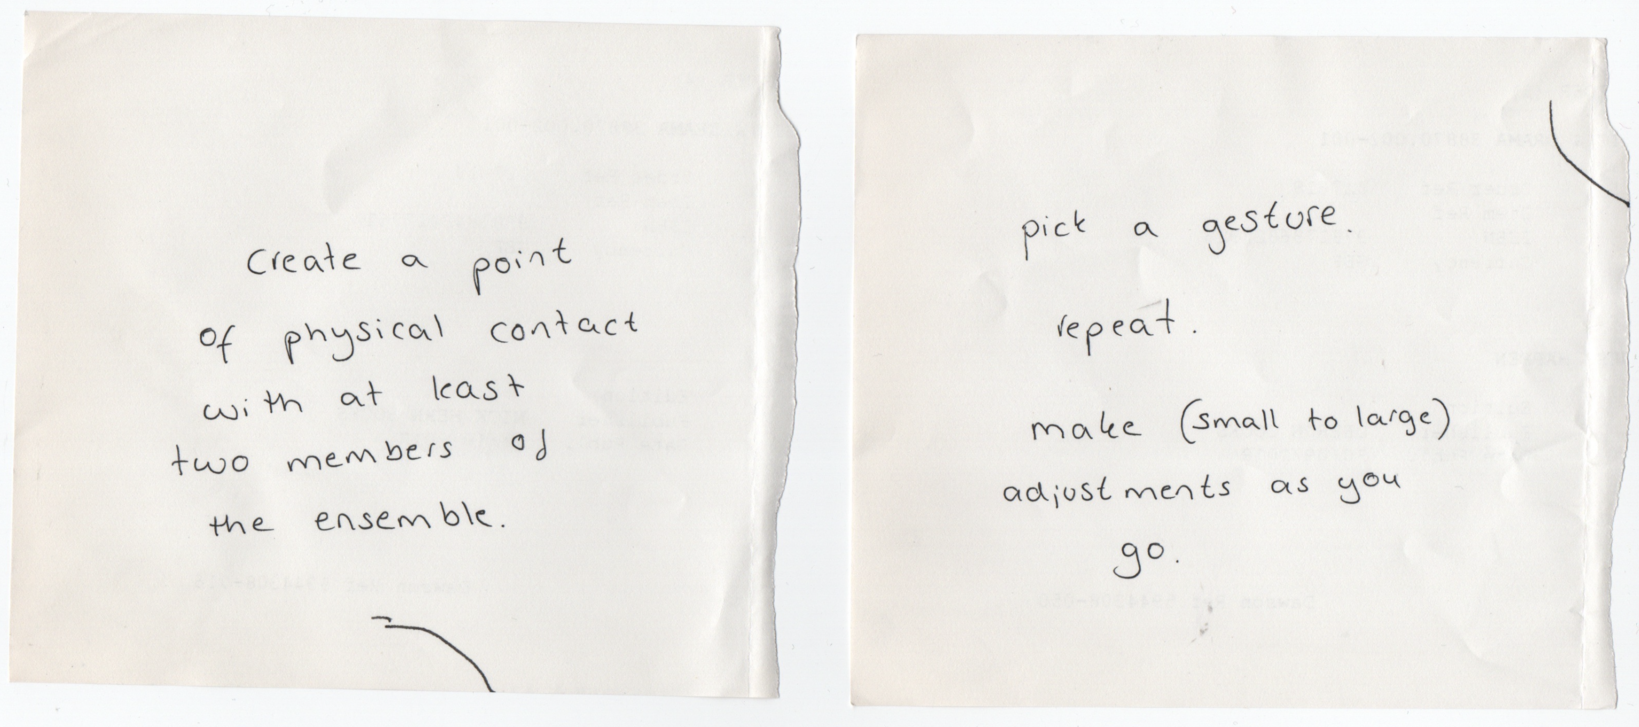 Create a point
of physical contact
with at least
two members of
the ensemble.
pick a gesture.
repeat.
make (small to large)
adjustments as you
go.